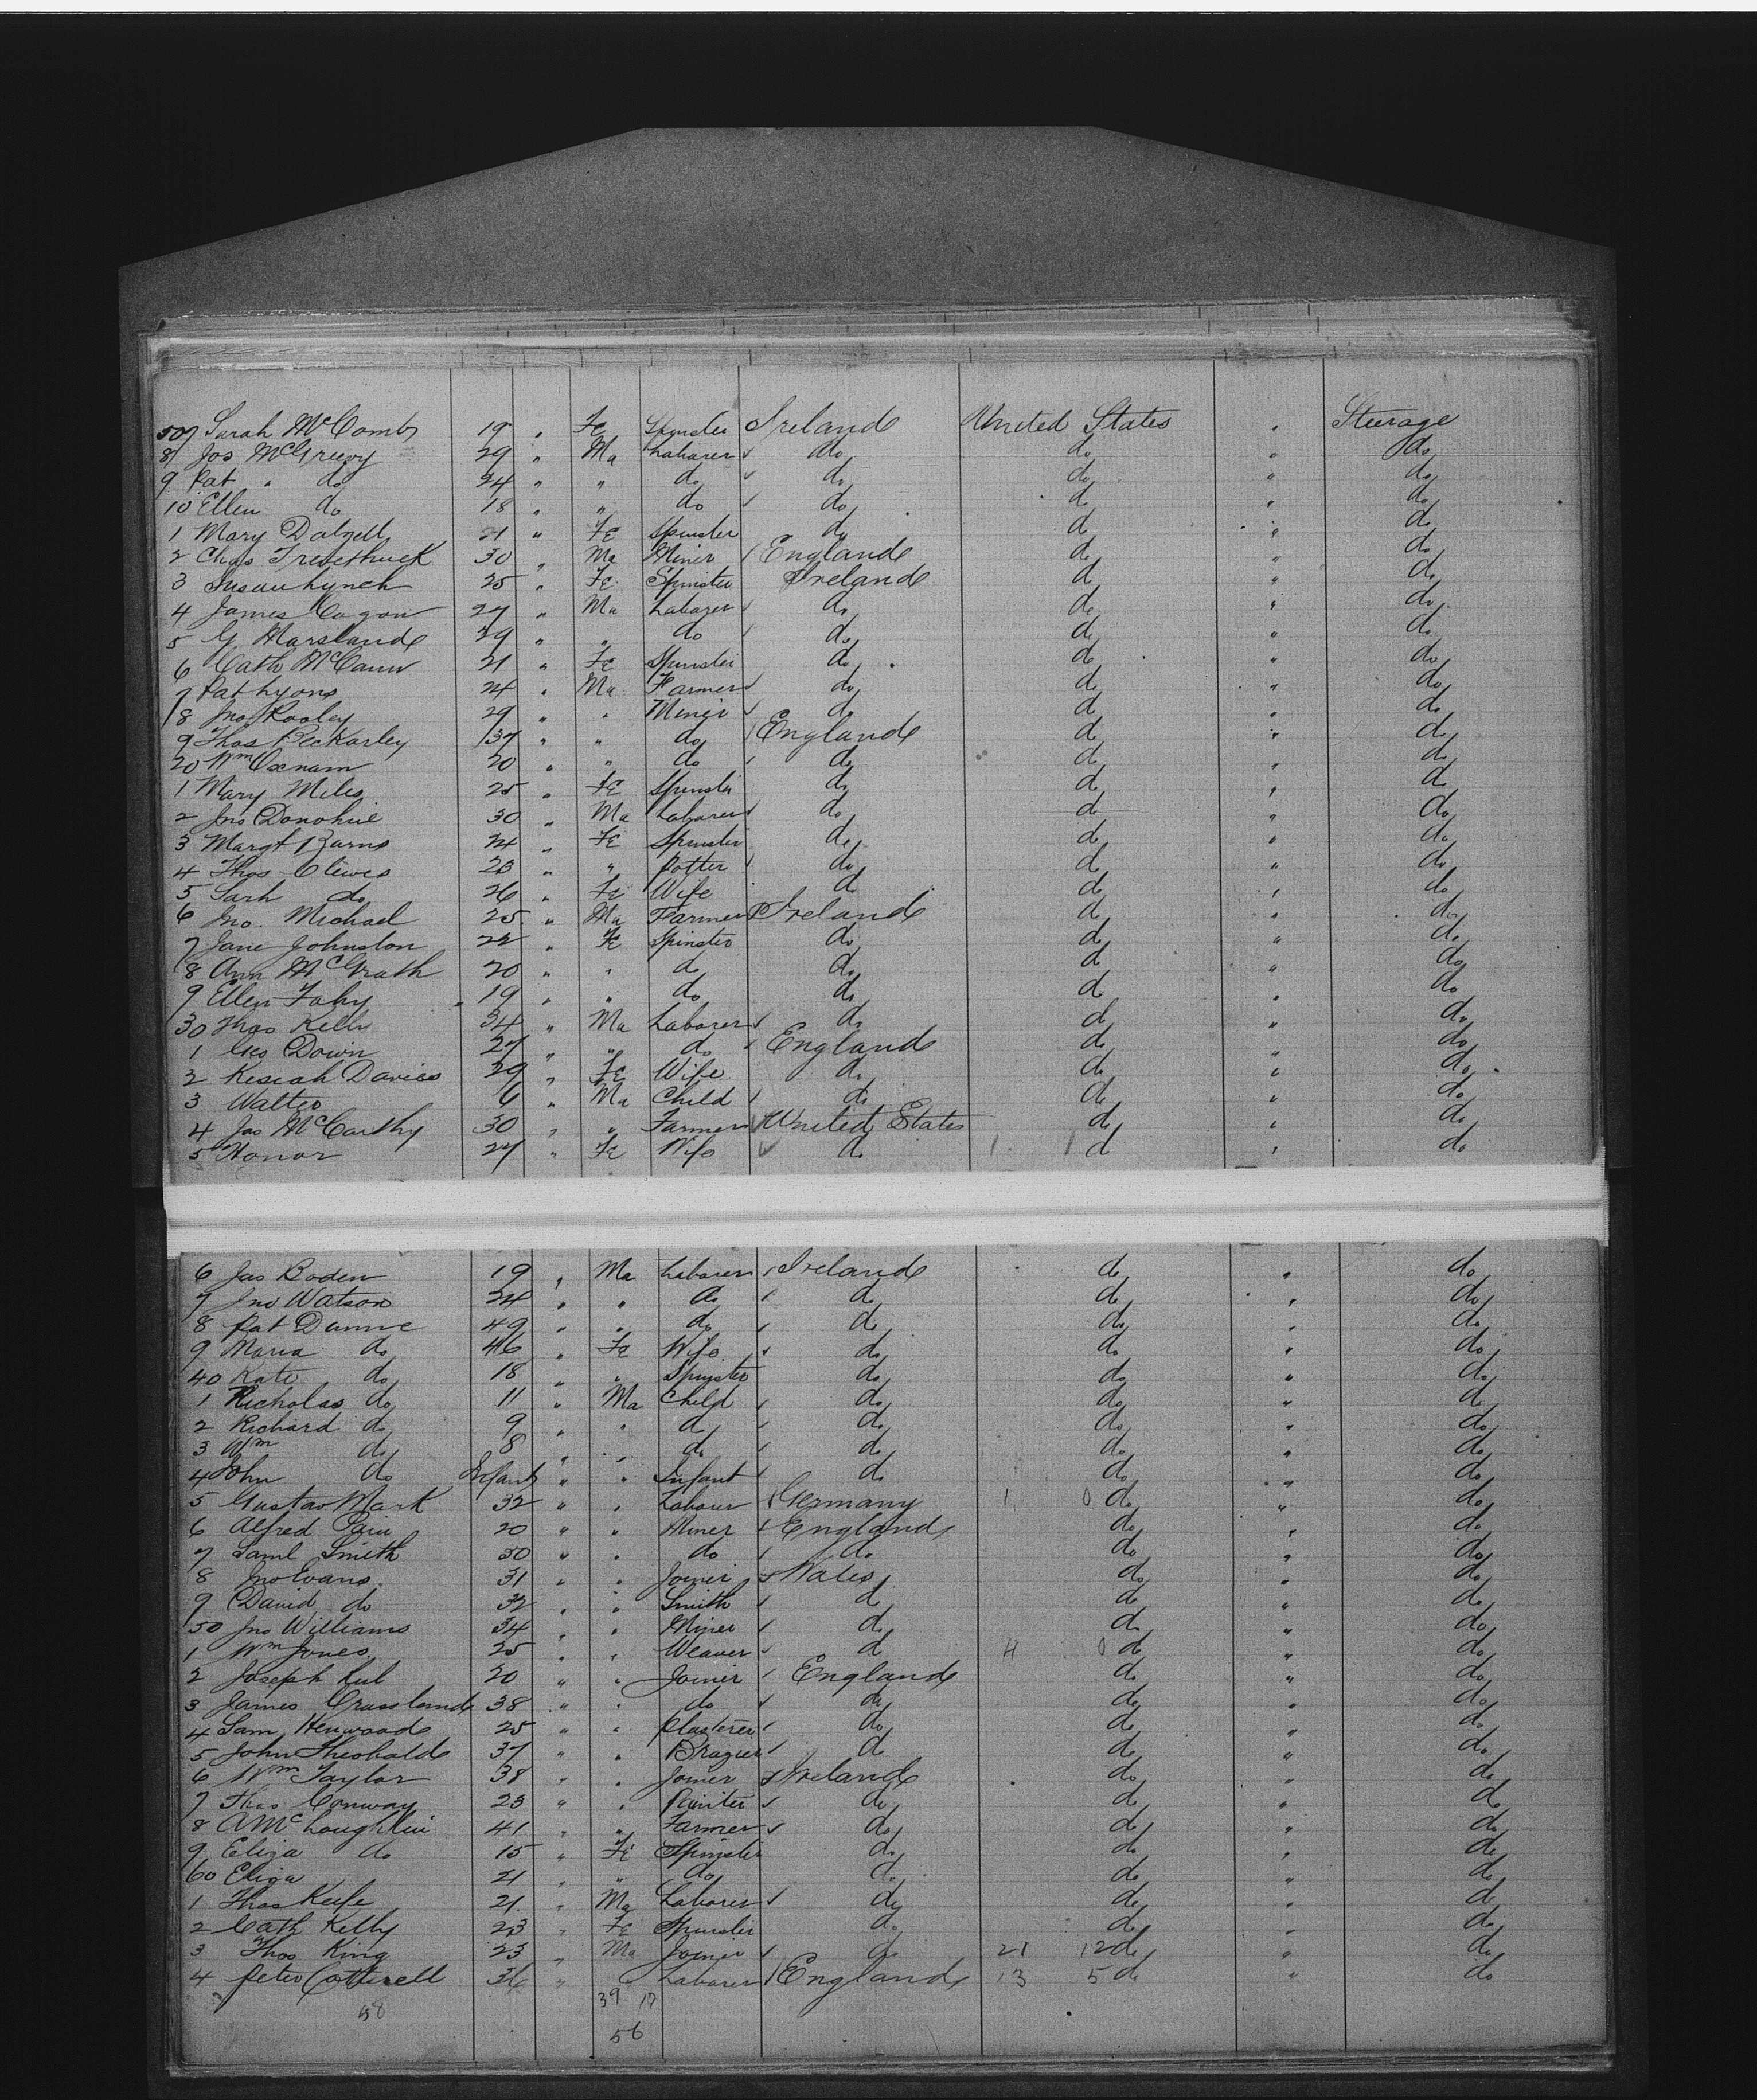 507 Sarah McComb 19 " Fe Spinster Ireland United States " Steerage
8 Jos McGreevy 29 " Ma Laborer do do " do
9 Pat " do 24 " " do do do " do
10 Ellen do 18 " " do do do " do
1 Mary Dalzell 21 " Fe Spinster do do " do
2 Chas Trevethick 30 " Ma Miner England do " do
3 Susan Lynch 25 " Fe Spinster Ireland do " do
4 James Cogan 27 " Ma Laborer do do " do
5 G Marsland 29 " " do do do " do
6 Cath McCann 21 " Fe Spinster do do " do
7 Pat Lyons 24 " Ma Farmer do do " do
8 Jno Rooley 29 " " Miner do do " do
9 Thos Beckarley 37 " " do England do " do
20 Wm Oxnam 20 " " do do do " do
1 Mary Miles 25 " Fe Spinster do do " do
2 Jno Donohue 30 " Ma Laborer do do " do
3 Margt Burns 24 " Fe Spinster do do " do
4 Thos Clewes 23 " " Potter do do " do
5 Sarh do 26 " Fe Wife do do " do
6 Jno. Michael 25 " Ma Farmer Ireland do " do
7 Jane Johnston 22 " Fe Spinster do do " do
8 Ann McGrath 20 " " do do do " do
9 Ellen Fahy 19 " " do do do " do
30 Thos Kelly 34 " Ma Laborer do do " do
1 Geo Down 27 " " do England do " do
2 Kesiah Davies 29 " Fe Wife do do " do
3 Walter 6 " Ma Child do do " do
4 Jas McCarthy 30 " " Farmer United States do " do
5 Honor 27 " Fe Wife do 1 1 do " do
6 Jas Boden 19 " Ma Laborer Ireland do " do
7 Jno Watson 24 " " do do do " do
8 Pat Dunne 49 " " do do do " do
9 Maria do 46 " Fe Wife do do " do
40 Kate do 18 " " Spinster do do " do
1 Nicholas do 11 " Ma Child do do " do
2 Richard do 9 " " do do do " do
3 Wm do 8 " " do do do " do
4 John do Infant " " Infant do do " do
5 Gustav Mark 32 " " Labour Germany 1 0 do " do
6 Alfred 20 " " Miner England do " do
7 Saml Smith 30 " " do do do " do
8 Jno Evans 31 " " Joiner Wales do " do
9 David do 32 " " Smith do do " do
50 Jno Williams 34 " " Miner do do " do
1 Wm Jones 25 " " Weaver do 4 0 do " do
2 Joseph 20 " " Joiner England do " do
3 James Crassland 38 " " do do do " do
4 Sam Henwood 25 " " Plasterer do do " do
5 John Theobald 37 " " Brazier do do " do
6 Wm Taylor 38 " " Joiner Ireland do " do
7 Thos Conway 23 " " do do " do
8 A McLoughlin 41 " " Farmer do do " do
9 Eliza do 15 " Fe Spinster do do " do
60 Eliza 21 " " do do do " do
1 Thos Keefe 21 " Ma Laborer do do " do
2 Cath Kelly 23 " Fe Spinster do do " do
3 Thos King 23 " Ma Joiner do 21 12 do " do
4 Peter Cotterell 36 " " Laborer England 13 5 do " do
58 39 17
56